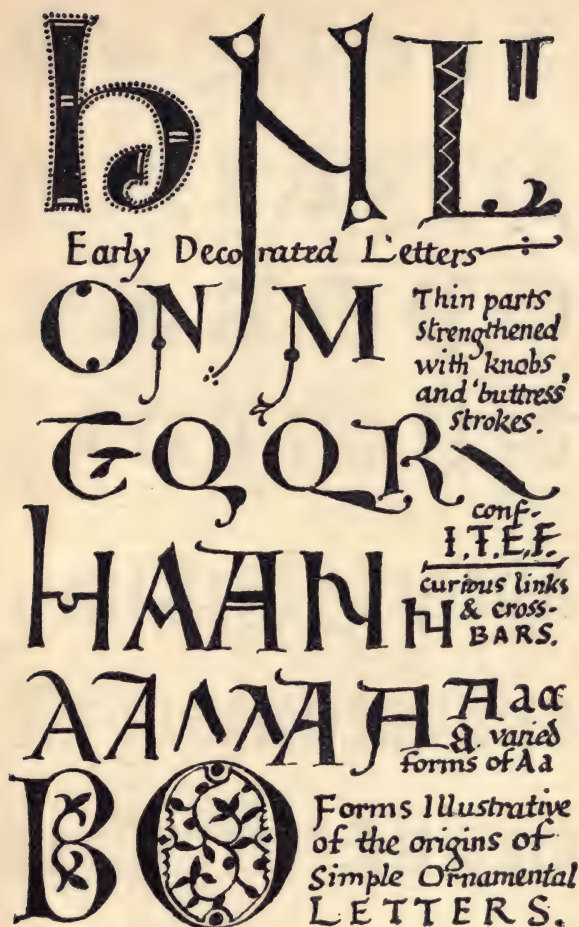 h N L "
Early Decorated Letters
O N M
Thin parts
strengthened
with knobs,
and 'buttress'
strokes.
G Q Q R
conf.
I. T. E. F.
H A A N
curious links
H & cross-
BARS.
A A Λ A A A A a α
a varied
forms of A a
B O
Forms Illustrative
of the origins of
Simple Ornamental
LETTERS.